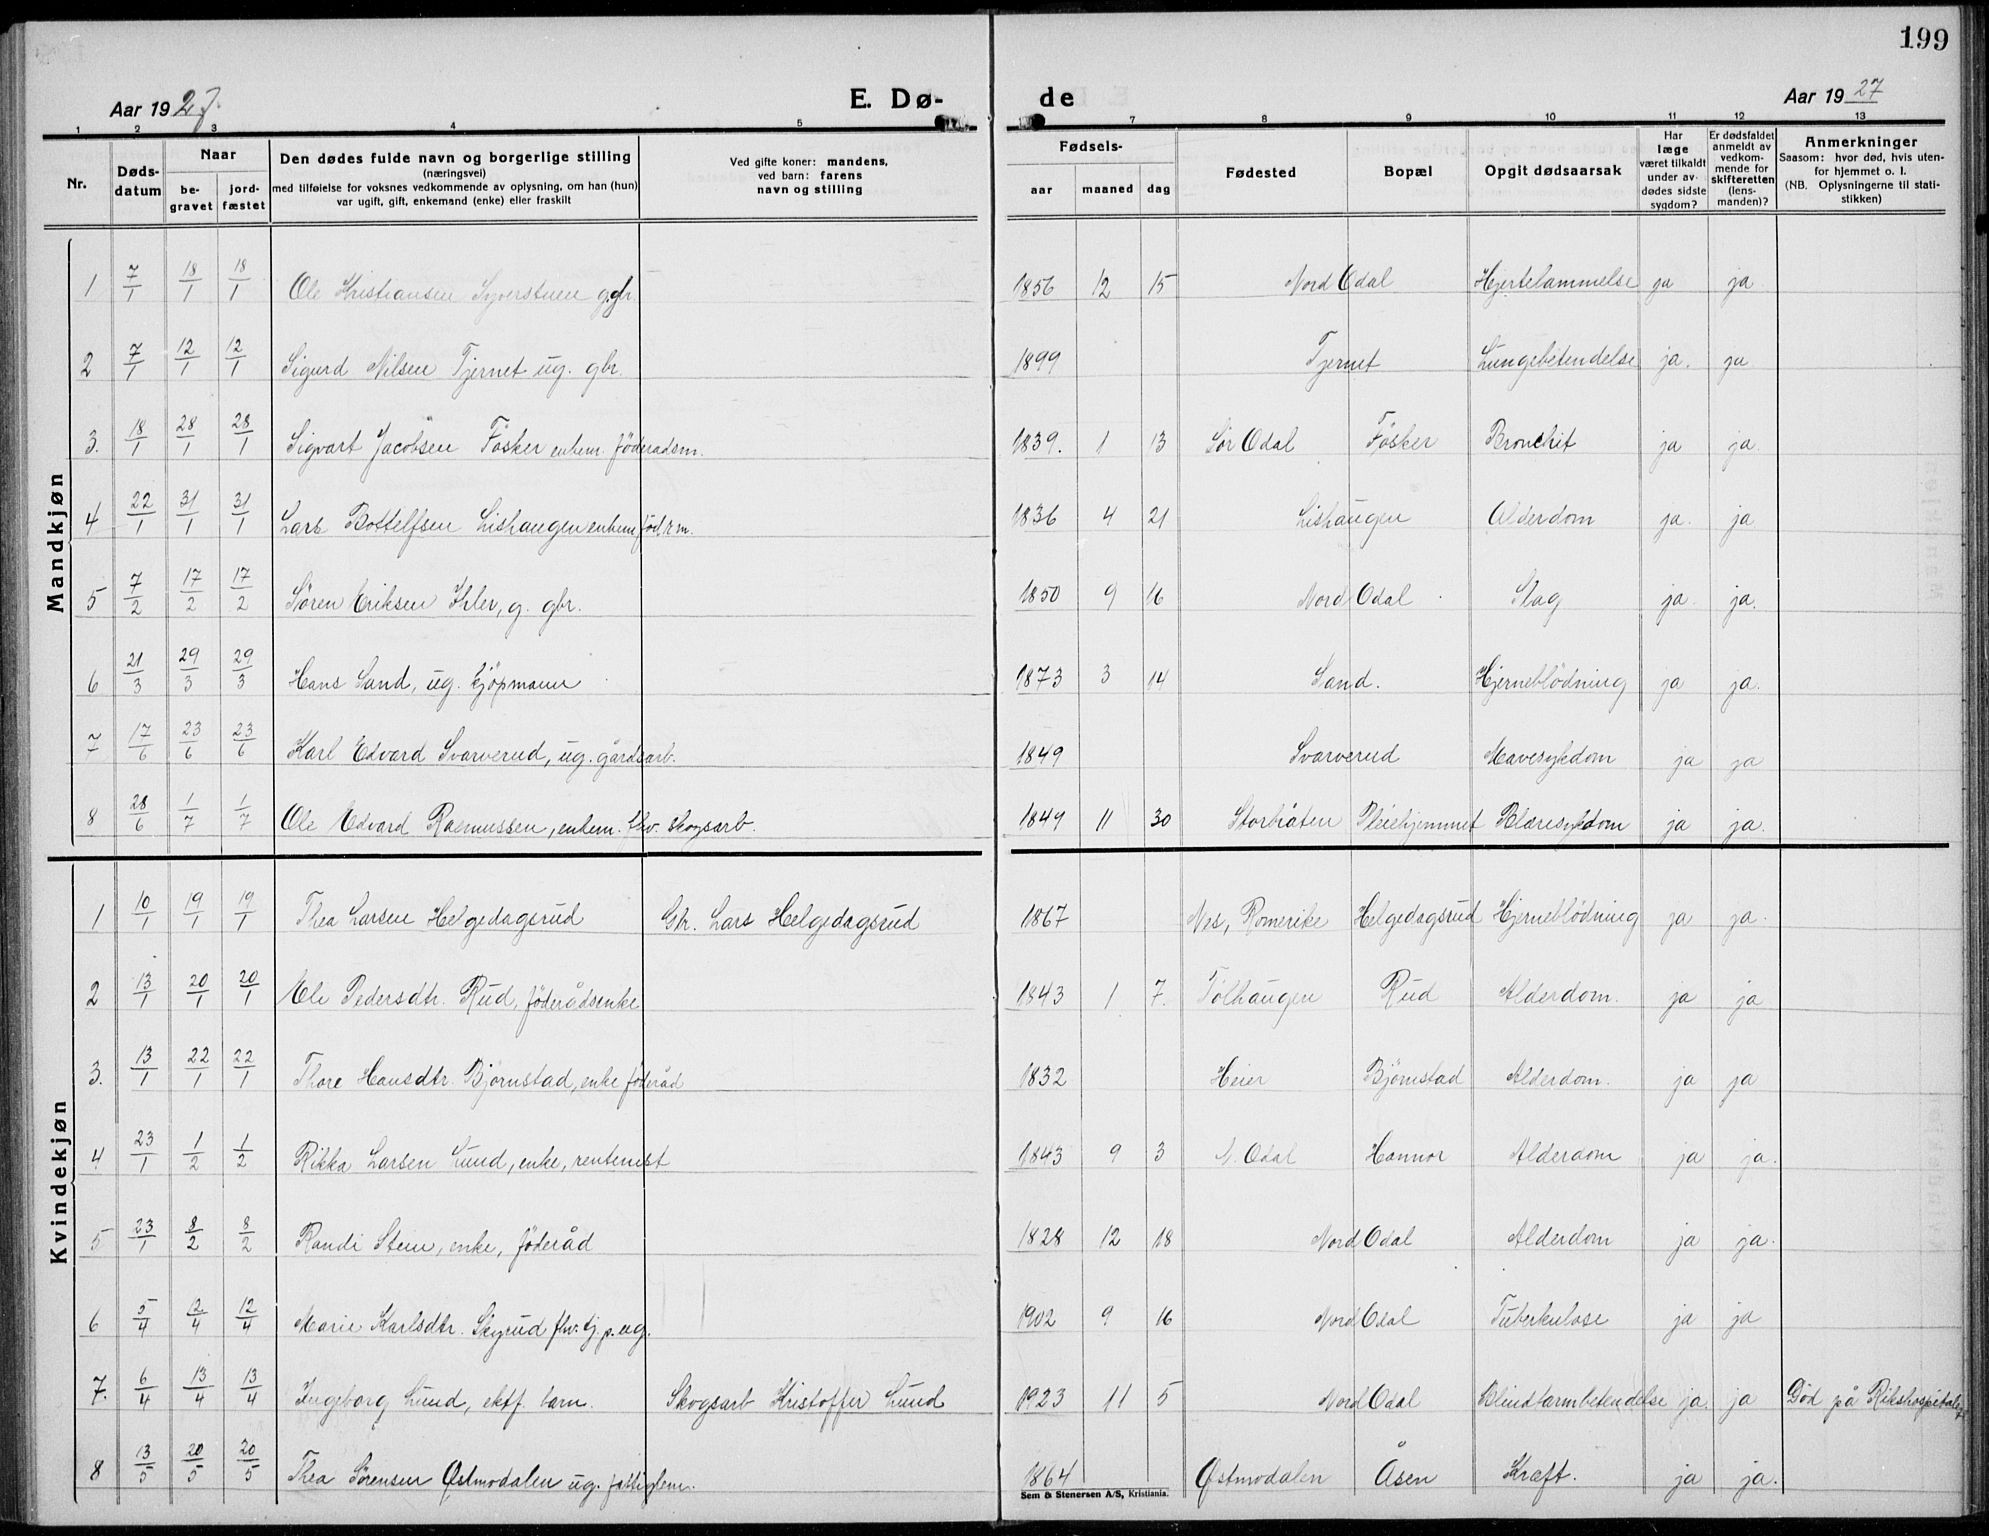 199
Aar 1927.
E. Dø-
de
Aar 1927
1 2 3 4 5 7 8 9 10 11 12 13
Nr.
Døds-
datum
Naar
be-
gravet
jord-
fæstet
Den dødes fulde navn og borgerlige stilling
(næringsvei)
med tilføielse for voksnes vedkommende av oplysning, om han (hun)
var ugift, gift, enkemand (enke) eller fraskilt
Ved gifte koner: mandens,
ved barn: farens
navn og stilling
Fødsels-
aar maaned dag
Fødested
Bopæl
Opgit dødsaarsak
Har
læge
været tilkaldt
under av-
dødes sidste
sygdom?
Er dødsfaldet
anmeldt av
vedkom-
mende for
skifteretten
(lens-
manden)?
Anmerkninger
Saasom: hvor død, hvis uten-
for hjemmet o. l.
(NB. Oplysningerne til stati-
stikken)
Mandkjøn
1 7/1 18/1 18/1 Ole Kristiansen Syverstuen g.gbr. 1856 12 15 Nord Odal Hjertelammelse ja ja
2 7/1 12/1 12/1 Sigurd Nilsen Tjernet ug. gbr. 1899 Tjernet Lungebetendelse ja. ja
3. 18/1 28/1 28/1 Sigvart Jacobsen Fösker enkem. föderadsm. 1839. 1 13 Sör Odal Fösker Bronchit ja ja.
4 22/1 31/1 31/1 Lars Bottelfsen Lishaugen enkem. 1836 4 21 Lishaugen Alderdom ja. ja
5 7/2 17/2 17/2 Sören Eriksen Ihler, g. gbr. 1850 9 16 Nord Odal Slag ja ja.
6 21/3 29/3 29/3 Hans Sand, ug. kjöpmann 1873 3 14 Sand. Hjerneblödning ja ja.
7 17/6 23/6 23/6 Karl Edvard Svarverud, ug. gårdsarb. 1849 Svarverud Mavesykdom ja ja
8 28/6 1/7 1/7 Ole Edvard Rasmussen, enkem. fhv. skogsarb. 1849 11 30 Storbråten Pleiehjemmet Blæresykdom ja ja.
Kvindekjøn
1 10/1 19/1 19/1 Thea Larsen Helgedagsrud Gbr. Lars Helgedagsrud 1867 Nes, Romerike Helgedagsrud Hjerneblödning ja ja.
2 13/1 20/1 20/1 Eli Pedersdtr. Rud, föderådsenke 1843 1 7. Tölhaugen Rud Alderdom. ja ja
3. 13/1 22/1 22/1 Thore Hansdtr. Björnstad, enke föderåd 1832 Heier Björnstad Alderdom. ja ja
4 23/1 1/2 1/2 Rikka Larsen Lund, enke, rentenist 1843 9 3 N. Odal Hannor Alderdom ja ja.
5 23/1 8/2 8/2 Randi Stein, enke, föderåd 1828 12 18 Nord Odal Alderdom ja ja.
6 5/4 12/4 12/4 Marie Karlsdtr. Skyrud fhv. tj.p. ug. 1902 9 16 Nord Odal Tuberkulose ja ja
7. 6/4 13/4 13/4 Ingeborg Lund, ektf. barn. Skogsarb Kristoffer Lund 1923 11 5 Nord Odal Blindtarmbetendelse ja. ja Död på Rikshospitalet
8 13/5 20/5 20/5 Thea Sörensen Østmodalen ug. fattiglem. 1864 Østmodalen Åsen Kræft. ja ja.
Sem & Stenersen A/S, Kristiania.